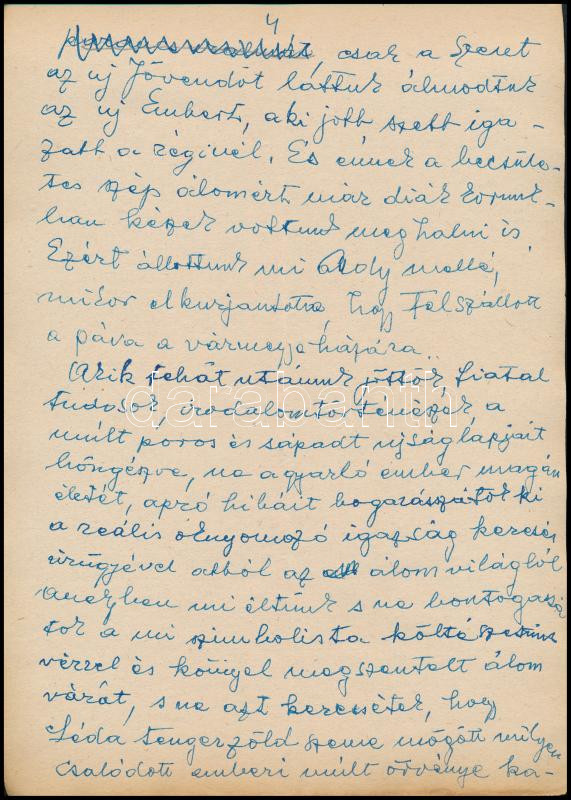 4
csak a Szeret
az új Jövendőt láttuk álmodtuk
az új Embert, aki jobb szebb iga-
zabb a réginél. És ennek a becsüle-
tes szép álomért már diák korunk-
ban készek voltunk meghalni is
Ezért állottunk mi Ady mellé,
mikor elkurjantotta, hogy Felszállott
a páva a vármegyeházára..
Akik tehát utánunk jöttök, fiatal
tudósok, irodalomtörténészek, a
múlt poros és sápadt ujságlapjait
böngészve, ne a gyarló ember magán
életét, apró hibáit bogarásszátok ki
a reális oknyomozó igazság keresés
ürügyével abból az álom világból
amelyben mi éltünk s ne bontogassá
tok a mi szimbolista költészetünk
vérrel és könnyel megszentelt álom
várát, s ne azt keressétek, hogy
Léda tengerzöld szeme mögött milyen
csalódott emberi múlt örvénye ka-
darabanth